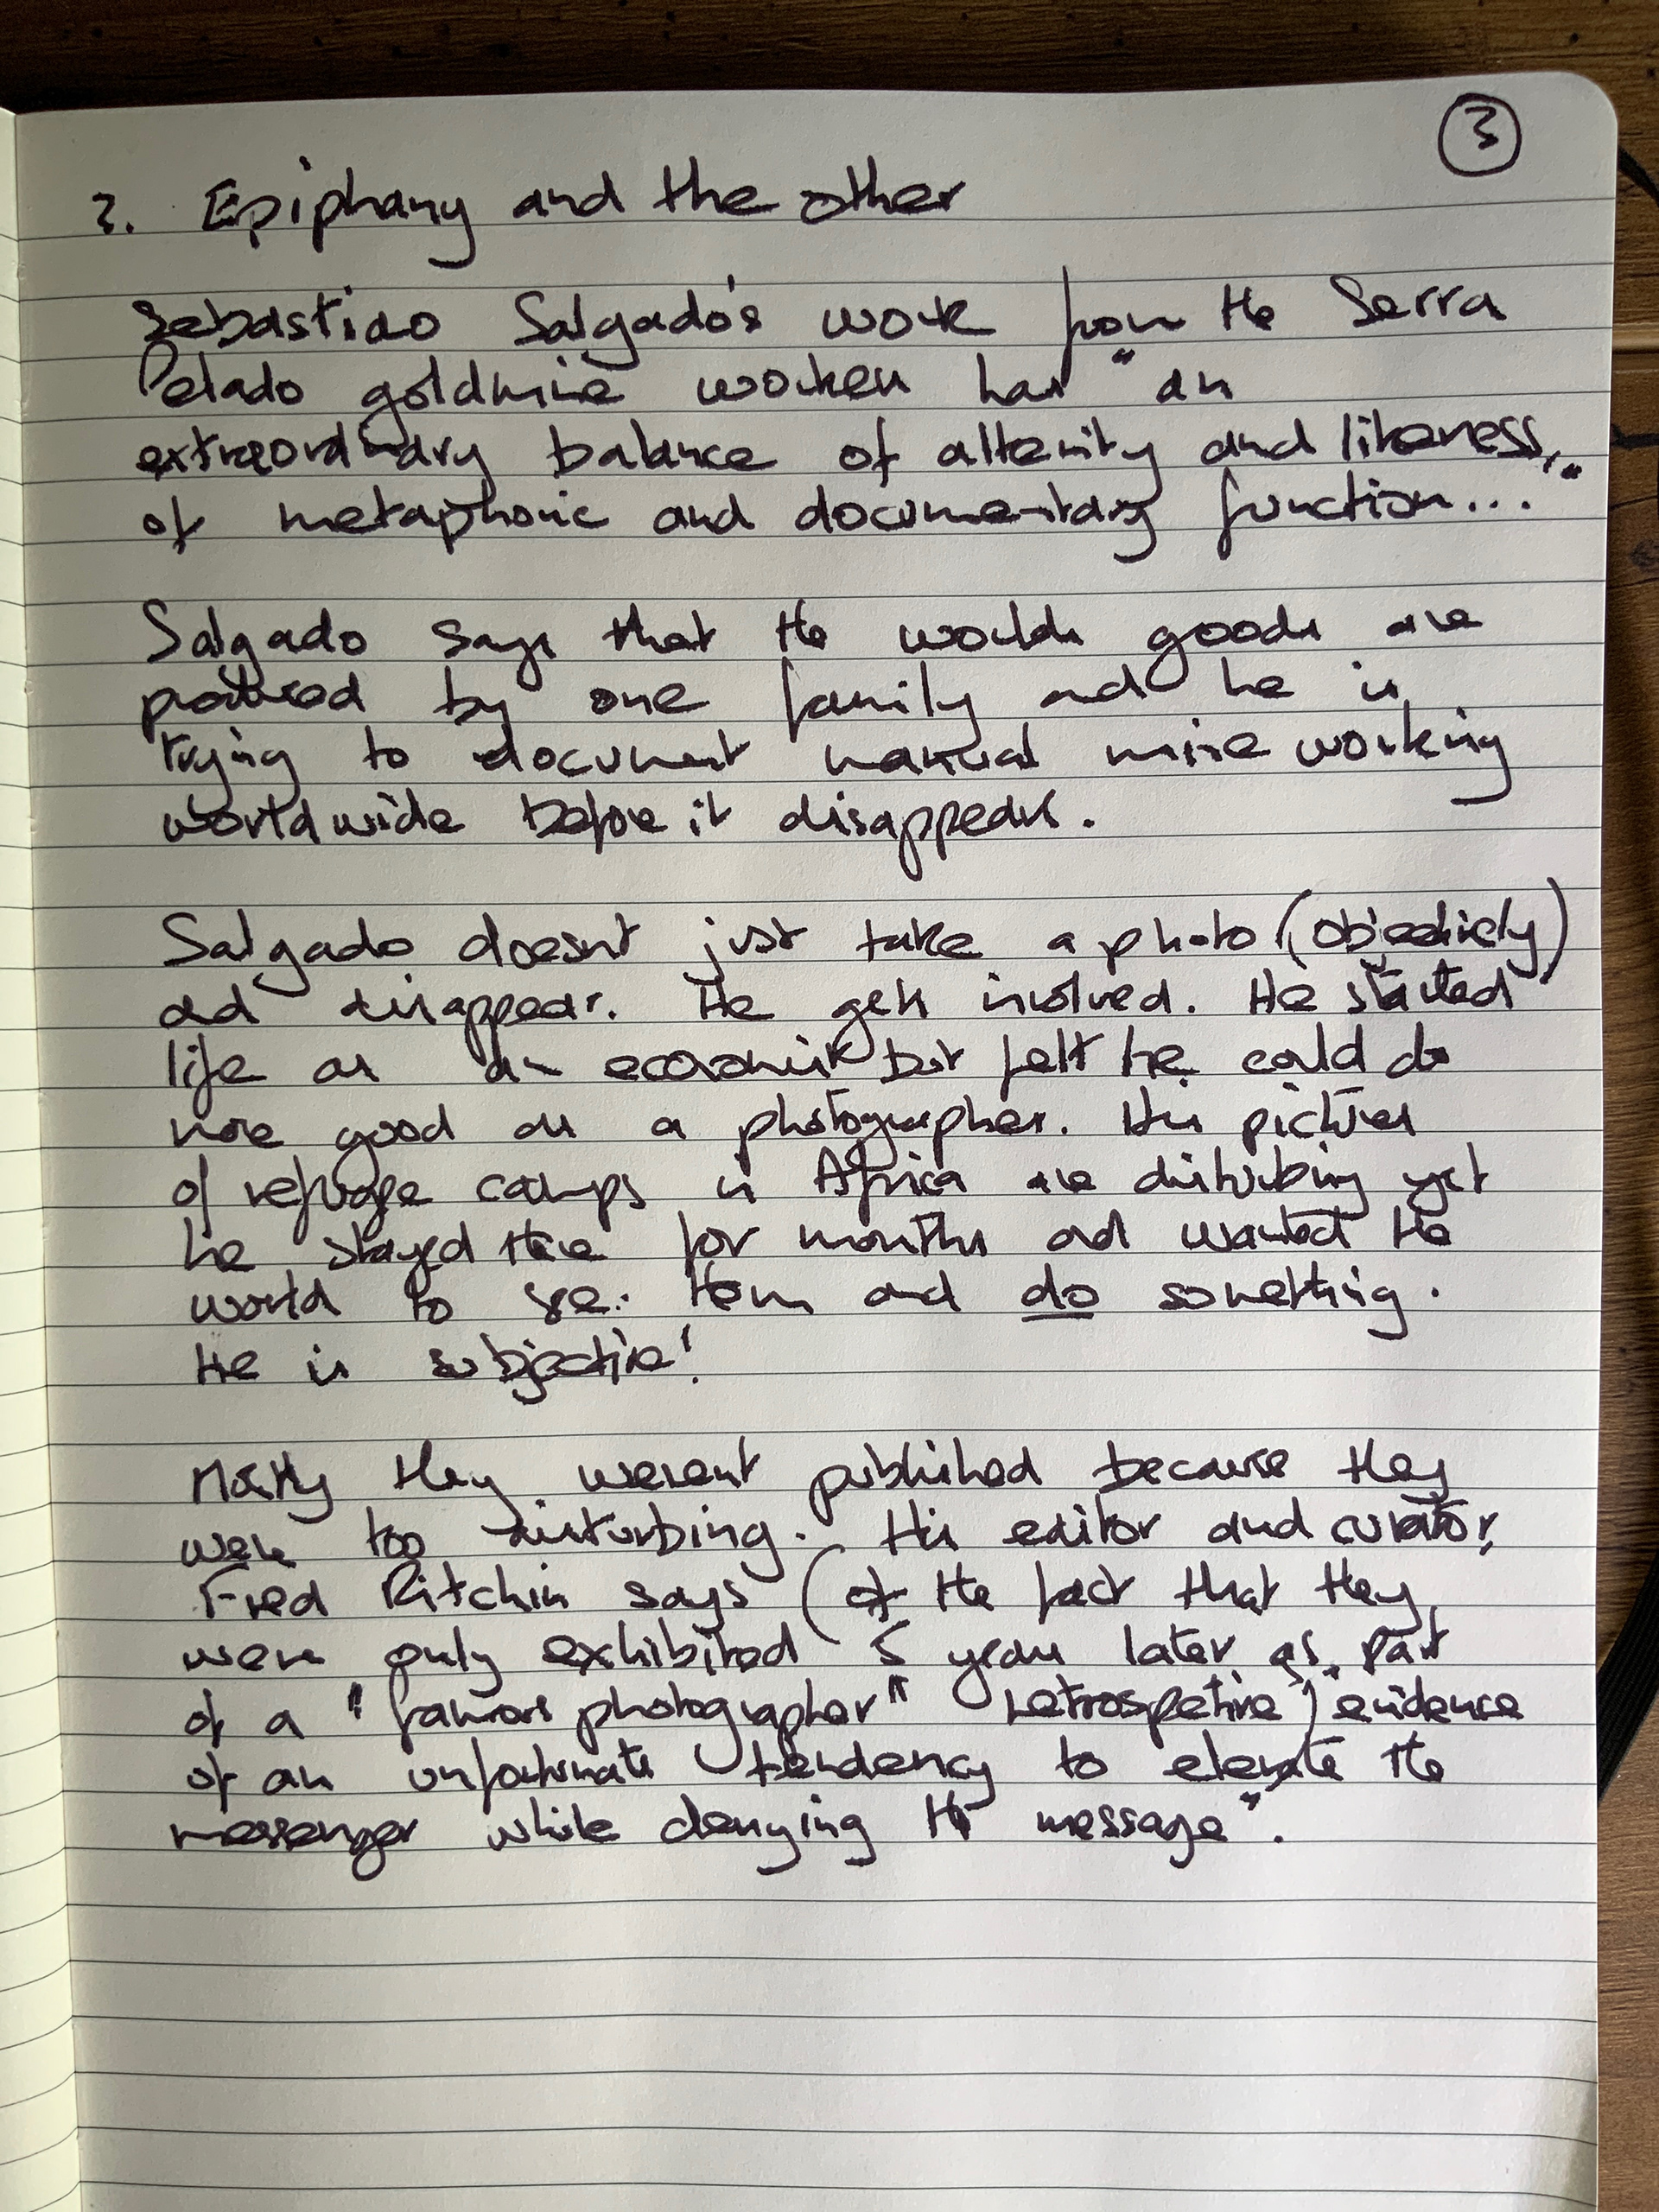 3
2. Epiphany and the other
Sebastiao Salgado's work from the Serra
Pelado goldmine workers has "an
extraordinary balance of alterity and likeness,
of metaphoric and documentary function..."
Salgado says that the worlds goods are
produced by one family and he is
trying to document manual mine working
worldwide before it disappears.
Salgado doesnt just take a photo (objectively)
and disappear. He gets involved. He started
life as an economist but felt he could do
more good as a photographer. His pictures
of refugee camps in Africa are disturbing yet
he stayed there for months and wanted the
world to see them and do something.
He is subjective!
Mostly they werent published because they
were too disturbing. His editor and curator,
Fred Ritchin says (of the fact that they
were only exhibited 5 years later as part
of a "famous photographer" retrospetive) "evidence
of an unfortunate tendency to elevate the
messenger while denying the message".